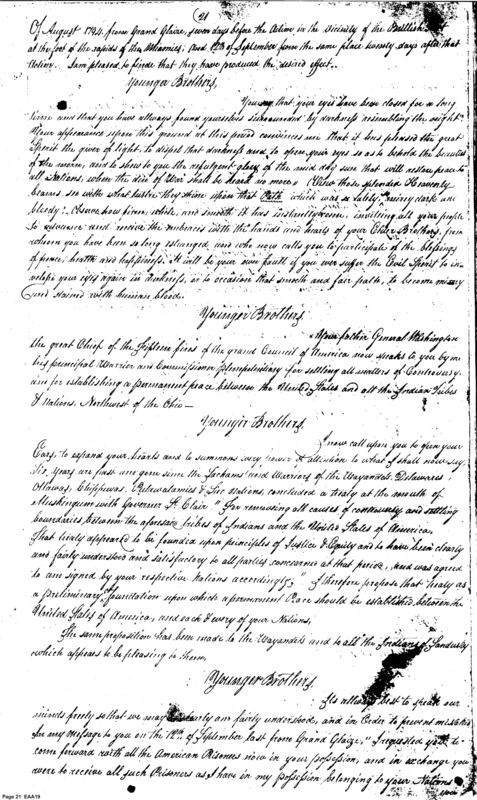 (21
Of August 1794. from Grand Glaize, seven days before the Action in the vicinity of the Brittish
at the foot of the rapids of the Miamies; And 12th of September from the same place twenty days after that
Action. I am pleased to finde that they have produced the desired effect..
Younger Brothers,
that your eyes have been closed for a long
time and that you have allways found yourselves surrounded by darkness resembling the night
Your appearance upon this ground at this period convinces me that it has pleased the great
Spirit the giver of light, to dispel that darkness and to open your eyes so as to behold the beauties
of the morn, and to shew to you the refulgent glory of the mid day sun that will restore peace to
all Nations, when the din of War shall be heard no more. (View those splended Heavenly
beams see with what lustre they shine upon that Path which was so lately miery dark and
bloody:, Observe how firm, white, and smooth it has instantly grown, inviting all your people
to advance and receive the embraces with the hands and hearts of your Elder Brothers, from
whom you have been so long estranged, and who now calls you to participate of the blessings
of peace, health and happiness. It will be your own fault if you ever suffer the Evil Spirit to in-
velope your eyes again in darkness, or to occasion that smooth and fair path, to become miery
and stained with human blood.
Younger Brothers
Your father General Washington
the great Chief of the Fifteen fires of the grand Council of America now speaks to you by me
his principal Warrior and Commissioner plenipotentiary for settling all matters of Controversy.
and for establishing a permanent peace between the United States and all the Indian Tribes
& Nations, Northwest of the Ohio —
Younger Brothers.
I now call upon you to open your
Ears, to expand your hearts and to summons every power of attention to what I shall now say,
Six, years are past and gone since the Sachams and Warriors of the Wayandots. Delawares
Ottawas, Chippewas, Putawatamies & Six Nations, concluded a treaty at the mouth of
Muskingum with Governor St. Clair "For removing all causes of controversy and settling
boundaries, between the aforesaid tribes of Indians and the United States of America.
That treaty appeared to be founded upon principles of Justice & Equity and to have been clearly
and fairly understood and satisfactory to all parties concerned at that period, and was agreed
to and signed by your respective Nations accordingly;" I therefore propose that treaty as
a preliminary foundation upon which a permanent Peace should be established between the
United States of America, and each & every of your Nations,
The same proposition has been made to the Wayandots and to all the Indians of Sandusky
which appears to be pleasing to them,
Younger Brothers,
Its allways best to speak our
minds freely so that we may clearly and fairly understood, and in Order to prevent mistakes
for my Message to you on the 12th of September last from Grand Glaize, "I requested you to
come forward with all the American Prisoners now in your possession, and in exchange you
were to receive all such Prisoners as I have in my possession belonging to your Nations
Page 21 EAA19